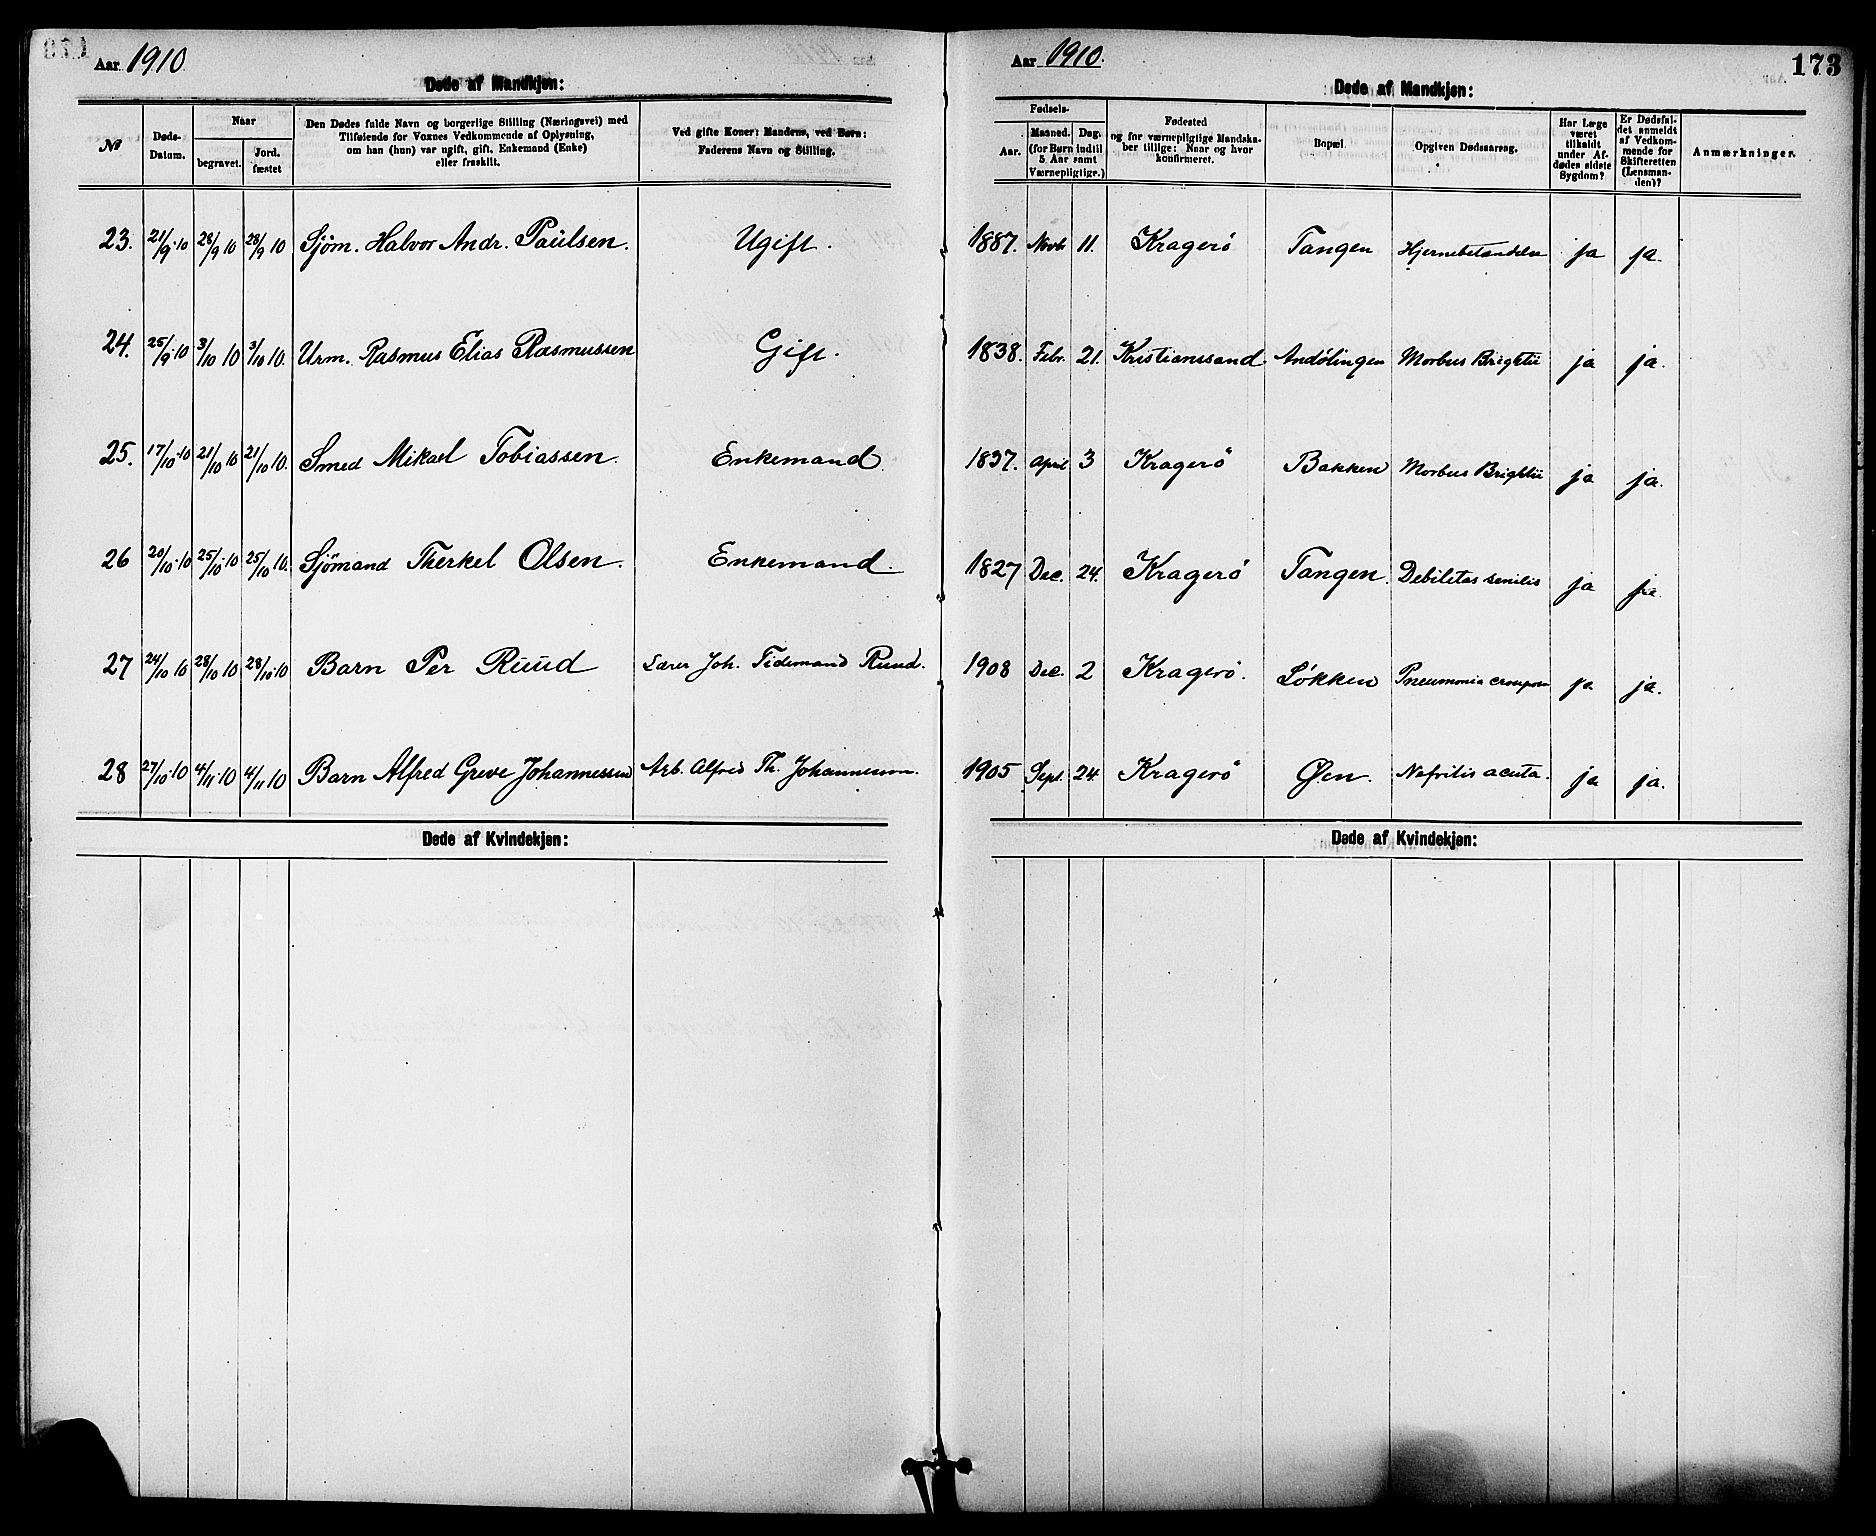 Aar 1910
Døde af Mandkjøn:
№
Døds-Datum.
Naar
begravet.
Jord.fæstet
Den Dødes fulde Navn og borgerlige Stilling (Næringsvei) med
Tilføiende for Voxnes Vedkommende af Oplysning,
om han (hun) var ugift, gift, Enkemand (Enke)
eller fraskilt.
Ved gifte Koner: Mandens, ved Børn:
Faderens Navn og Stilling.
23. 21/9-10 28/9 10 28/9 10 Sjøm. Halvor Andr. Paulsen. Ugift.
24. 25/9-10 3/10 10 3/10 10. Urm. Rasmus Elias Rasmussen Gift.
25. 17/10-10 21/10 10 21/10 10. Smed Mikael Tobiassen. Enkemand.
26 20/10-10 25/10-10 25/10 10. Sjömand Therkel Olsen. Enkemand.
27 24/10 10 28/10 10 28/10-10 Barn Per Ruud Lærer Joh. Tidemand Ruud.
28 27/10-10 4/11-10 4/11 10 Barn Alfred Greve Johannessen Arb. Alfred Th. Johannesen.
Døde af Kvindekjøn:
Aar 1910.
173
Døde af Mandkjøn:
Fødsels-
Aar.
Maaned.
Dag.
(for Børn indtil
5 Aar samt
Værnepligtige.)
Fødested
og for værnepligtige Mandska-
ber tillige: Naar og hvor
konfirmeret.
Bopæl.
Opgiven Dødsaarsag.
Har Læge
været
tilkaldt
under Af-
dødes sidste
Sygdom?
Er Dødsfal-
det anmeldt
af Vedkom-
mende for
Skifteretten
(Lensman-
den)?
Anmærkninger.
1887. Novb. 11. Kragerö Tangen Hjernebetændelse ja ja.
1838. Febr. 21. Kristianssand. Andölingen Morbus Brightii ja ja.
1837. April 3 Kragerö Bakken Morbus Brightii ja ja.
1827 Dec. 24. Kragerö Tangen. Debilitas senilis ja ja.
1908 Dec. 2 Kragerö. Løkken Pneumonia crouposa ja ja.
1905 Sept. 24. Kragerö Øen. Nefritis acuta. ja ja.
Døde af Kvindekjøn: